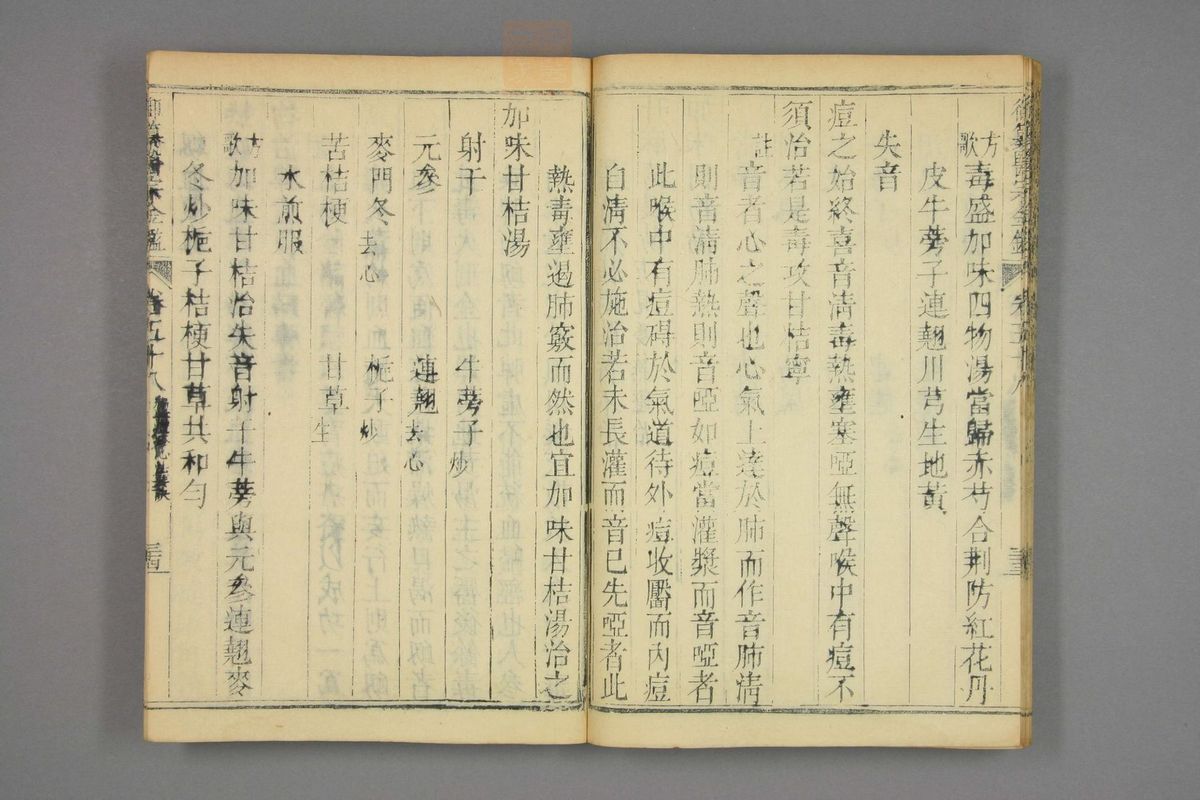 方歌 毒盛加味四物湯當歸赤芍合荆防紅花丹
皮牛蒡子連翹川芎生地黃
失音
痘之始終喜音淸毒熱壅塞啞無聲喉中有痘不
須治若是毒攻甘桔寧
註 音者心之聲也心氣上達於肺而作音肺淸
則音淸肺熱則音啞如痘當灌漿而音啞者
此喉中有痘礙於氣道待外痘收靨而內痘
自淸不必施治若未長灌而音已先啞者此
熱毒壅遏肺竅而然也宜加味甘桔湯治之
加味甘桔湯
射干 牛蒡子炒
元參 連翹去心
麥門冬去心 梔子炒
苦桔梗 甘草生
水煎服
方歌 加味甘桔治失音射干牛蒡與元參連翹麥
冬炒梔子桔梗甘草共和勻
御纂醫宗金鑑 卷五十八